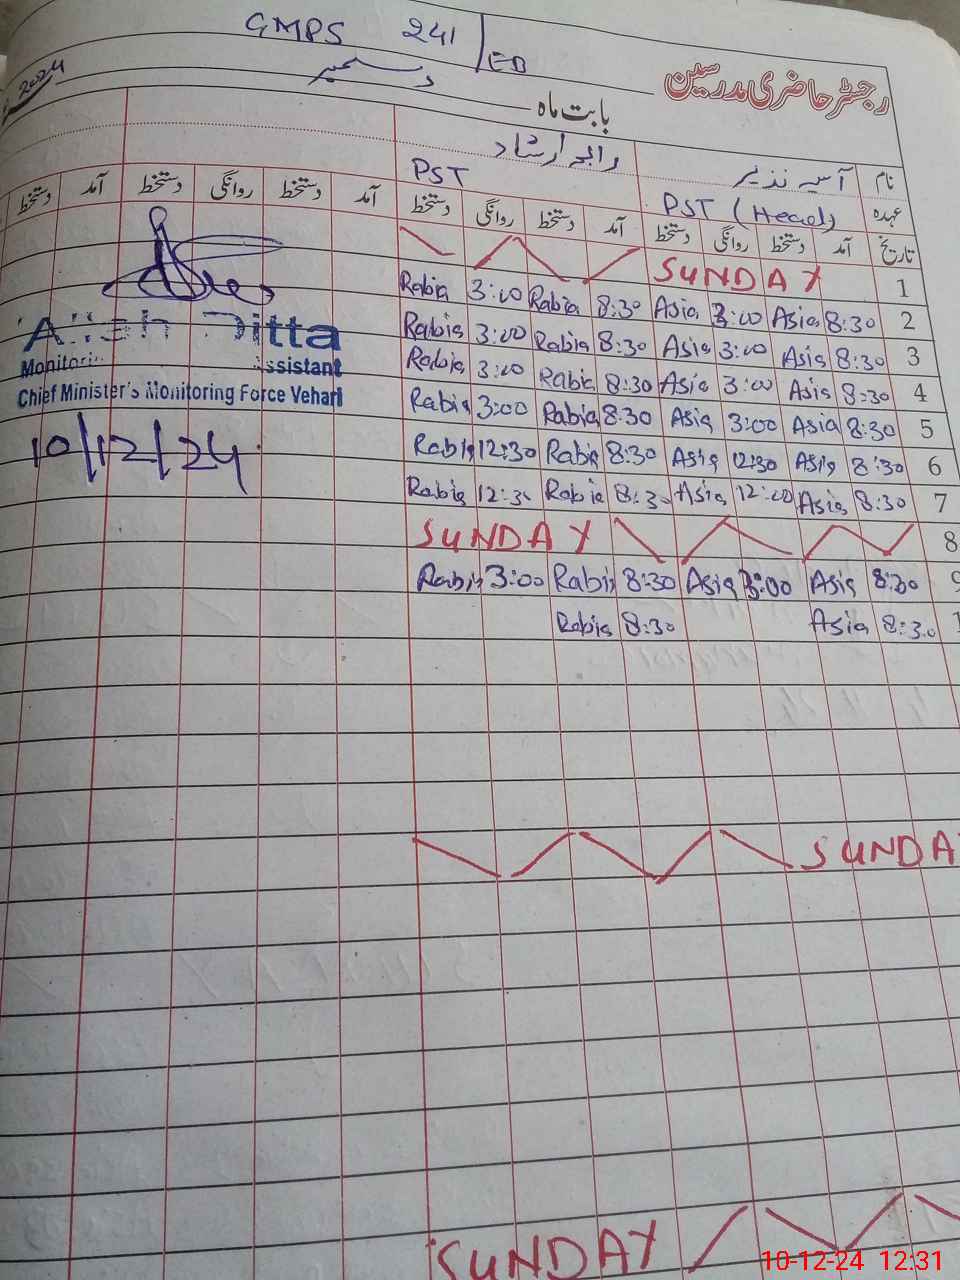 GMPS 241/EB
رجسٹر حاضری مدرسین
2024
بابت ماہ دسمبر
نام آسیہ نذیر رابعہ ارشاد
عہدہ PST (Head) PST
تاریخ آمد دستخط روانگی دستخط آمد دستخط روانگی دستخط آمد دستخط روانگی دستخط آمد دستخط
1 SUNDAY
Rabia 3:00 Rabia 8:30 Asia 3:00 Asia 8:30 2
Rabia 3:00 Rabia 8:30 Asia 3:00 Asia 8:30 3
Rabia 3:00 Rabia 8:30 Asia 3:00 Asia 8:30 4
Rabia 3:00 Rabia 8:30 Asia 3:00 Asia 8:30 5
Rabia 12:30 Rabia 8:30 Asia 12:30 Asia 8:30 6
Rabia 12:30 Rabia 8:30 Asia 12:00 Asia 8:30 7
SUNDAY 8
Rabia 3:00 Rabia 8:30 Asia 3:00 Asia 8:30 9
Rabia 8:30 Asia 8:30 1
Ditta
Monitoring Assistant
Chief Minister's Monitoring Force Vehari
10/12/24
SUNDAY
SUNDAY
10-12-24 12:31